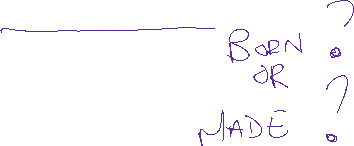 BORN ?
OR
MADE ?